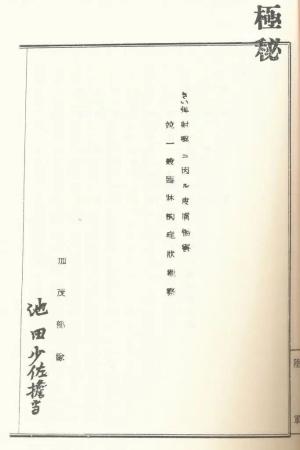 極秘
きい彈射擊ニ因ル皮膚傷害
並一般臨牀的症狀觀察
加茂部隊
池田少佐擔当
陸軍